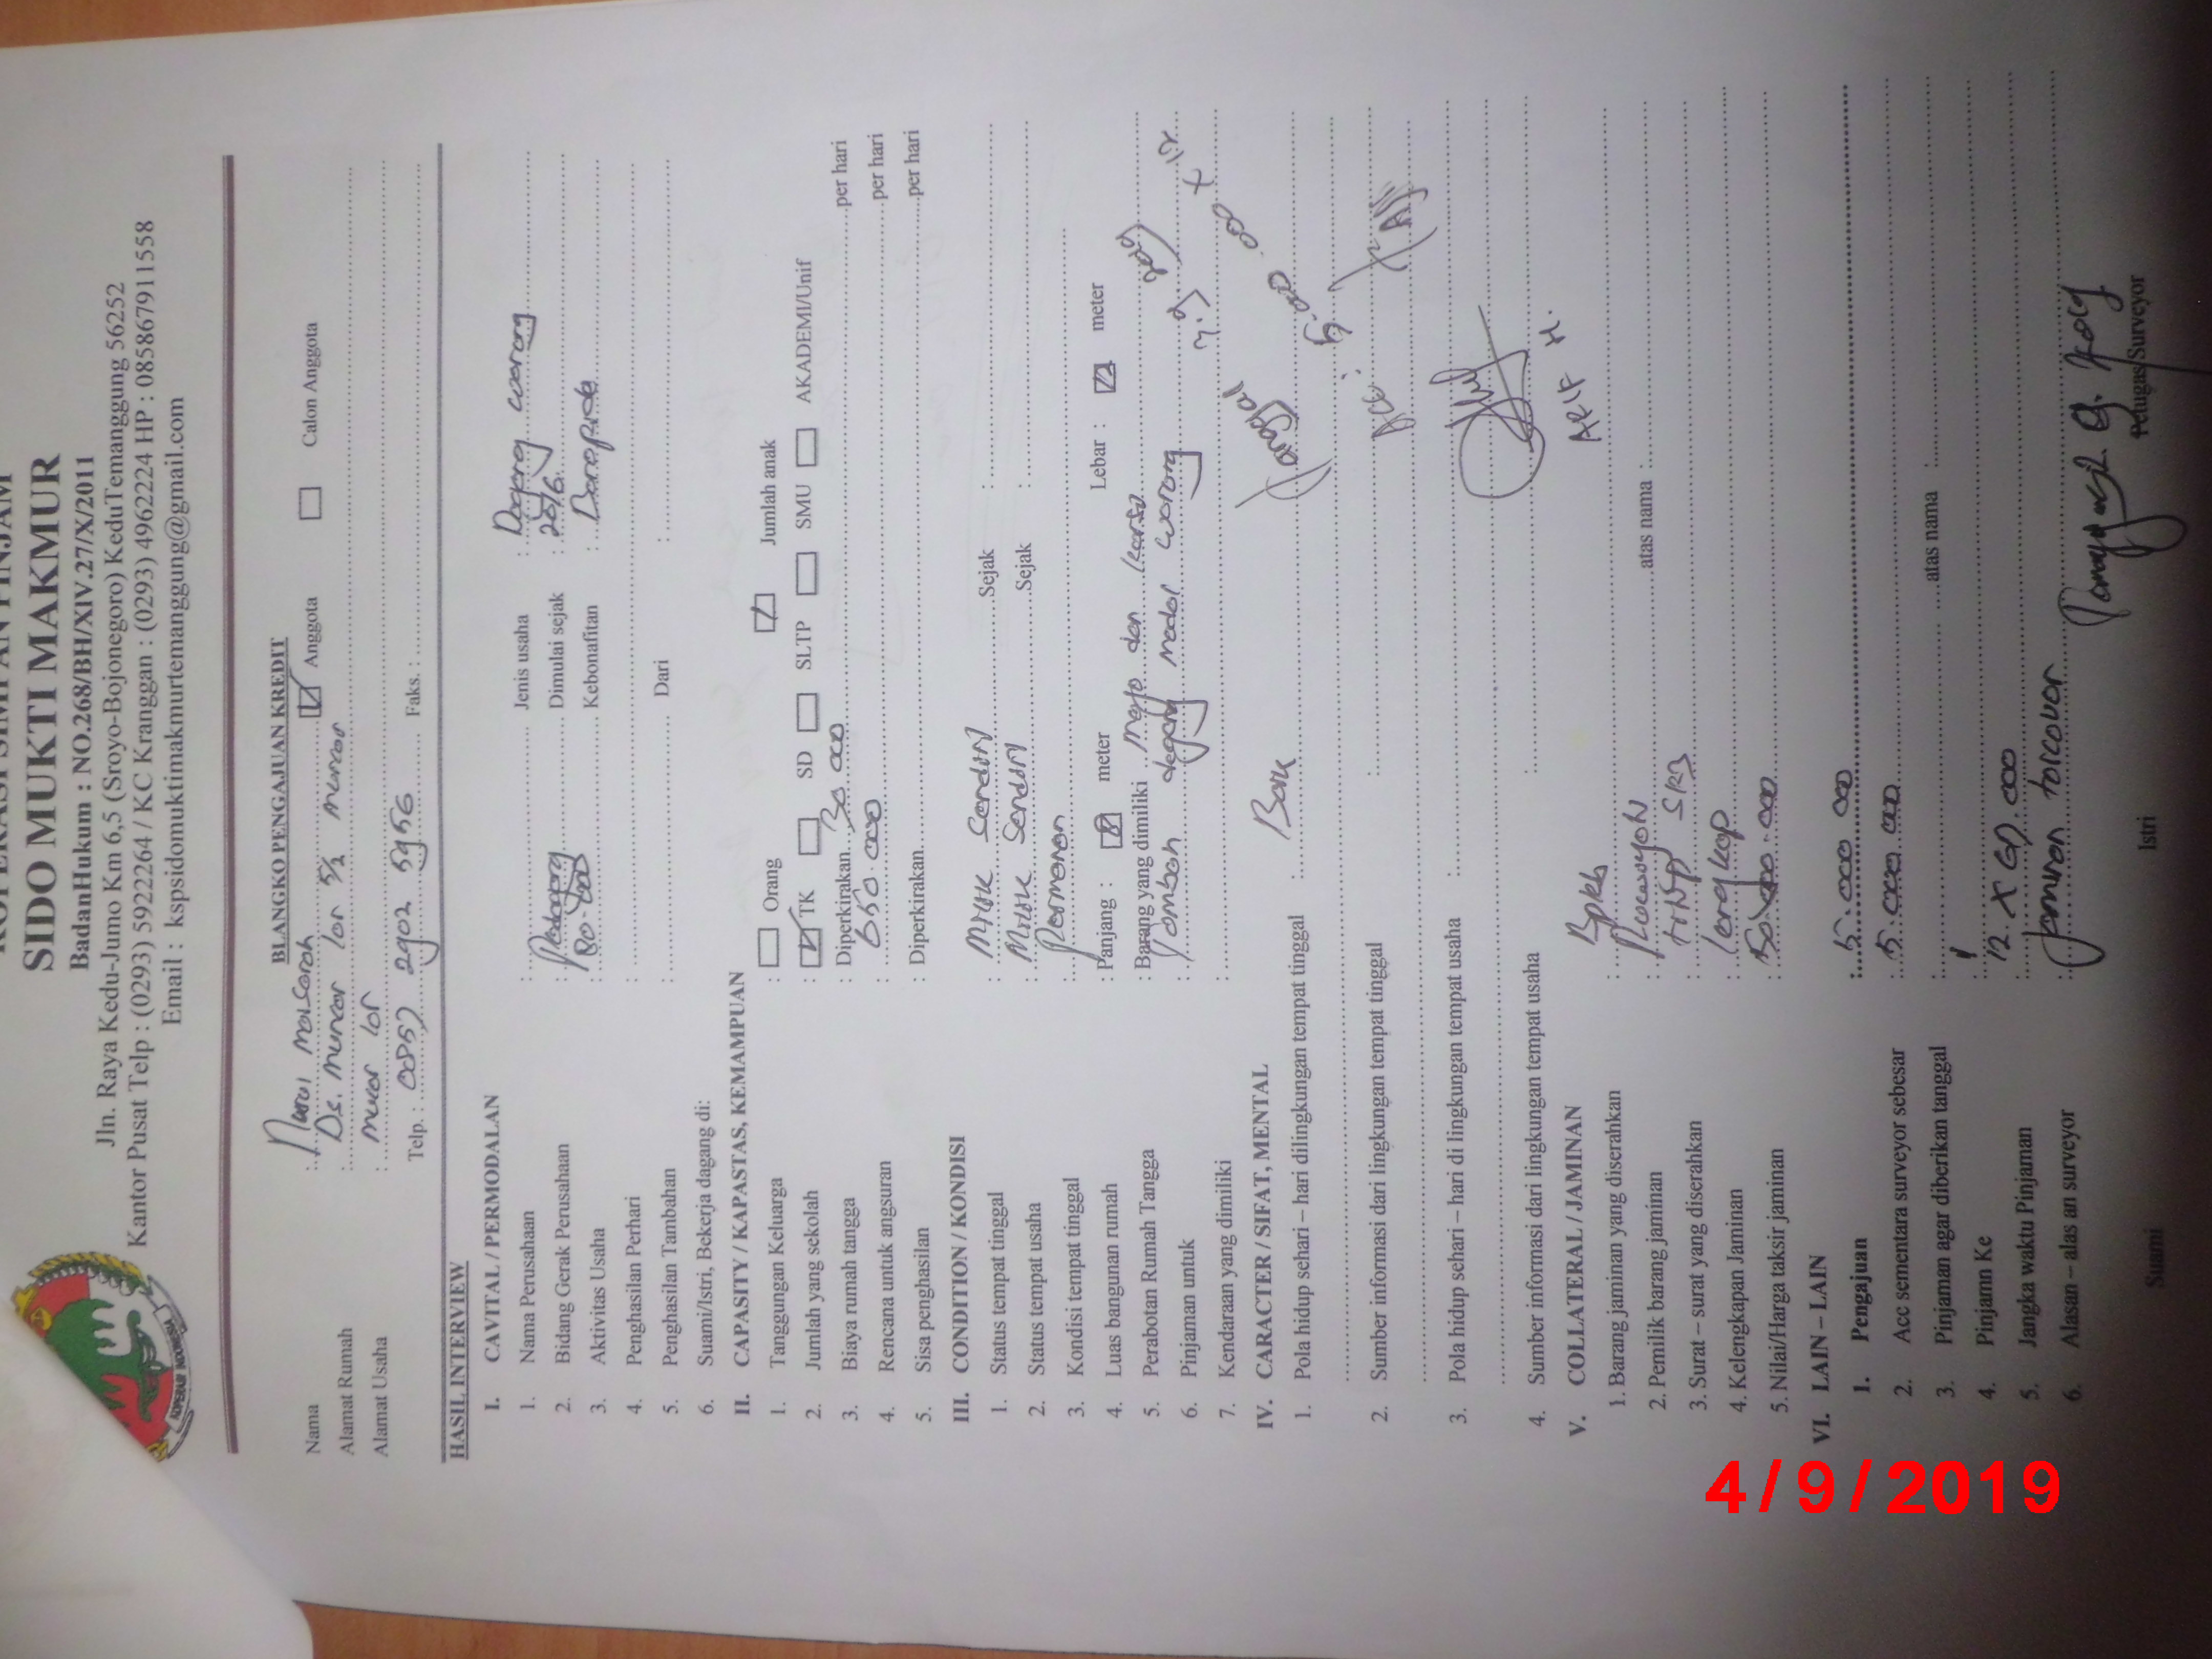 KOPERASI SIMPAN PINJAM
SIDO MUKTI MAKMUR
BadanHukum : NO.268/BH/XIV.27/X/2011
Jln. Raya Kedu-Jumo Km 6,5 (Sroyo-Bojonegoro) KeduTemanggung 56252
Kantor Pusat Telp : (0293) 5922264 / KC Kranggan : (0293) 4962224 HP : 085867911558
Email : kspsidomuktimakmurtemanggung@gmail.com
KOPERASI INDONESIA
BLANGKO PENGAJUAN KREDIT
Nama : Anggota Calon Anggota
Alamat Rumah : Ds. muncar lor 5/2 muncar
Alamat Usaha : lor
Telp. : 0857 2902 5956 Faks. :
HASIL INTERVIEW
I. CAVITAL / PERMODALAN
1. Nama Perusahaan : Jenis usaha : Dagang warong
2. Bidang Gerak Perusahaan : Pedagang Dimulai sejak : 2016
3. Aktivitas Usaha : Kebonafitan :
4. Penghasilan Perhari :
5. Penghasilan Tambahan : Dari :
6. Suami/Istri, Bekerja dagang di:
II. CAPASITY / KAPASTAS, KEMAMPUAN
1. Tanggungan Keluarga : Orang Jumlah anak
2. Jumlah yang sekolah : TK SD SLTP SMU AKADEMI/Unif
3. Biaya rumah tangga : Diperkirakan 30 000 per hari
4. Rencana untuk angsuran : 650.000 per hari
5. Sisa penghasilan : Diperkirakan per hari
III. CONDITION / KONDISI
1. Status tempat tinggal : Milik Sendiri Sejak :
2. Status tempat usaha : Milik Sendiri Sejak :
3. Kondisi tempat tinggal : Permanen
4. Luas bangunan rumah : Panjang : meter Lebar : meter
5. Perabotan Rumah Tangga : Barang yang dimiliki mejo dan korsi
6. Pinjaman untuk : dagang modal warong
7. Kendaraan yang dimiliki :
IV. CARACTER / SIFAT, MENTAL
1. Pola hidup sehari – hari dilingkungan tempat tinggal : Baik
2. Sumber informasi dari lingkungan tempat tinggal :
Acc :
3. Pola hidup sehari – hari di lingkungan tempat usaha :
4. Sumber informasi dari lingkungan tempat usaha :
ARIF H.
V. COLLATERAL / JAMINAN
1. Barang jaminan yang diserahkan : Bpkb
2. Pemilik barang jaminan : atas nama :
3. Surat – surat yang diserahkan :
4. Kelengkapan Jaminan : lengkap
5. Nilai/Harga taksir jaminan :
VI. LAIN – LAIN
1. Pengajuan : 5.000 000
2. Acc sementara surveyor sebesar : 5.000 000
3. Pinjaman agar diberikan tanggal : atas nama :
4. Pinjamn Ke : 1
5. Jangka waktu Pinjaman : 12 X
6. Alasan – alas an surveyor : jaminan torcover
Suami Istri Petugas Surveyor
4/9/2019